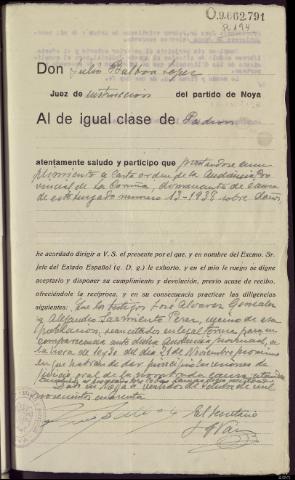 O.9.662.791
Don Julio Balboa Lopez
Juez de instruccion del partido de Noya
Al de igual clase de Padron
atentamente saludo y participo que prestandose cum
plimiento a carta orden de la Audiencia Pro
vincial de La Coruña, dimanante de causa
de este juzgado numero 13-1938 sobre daños
he acordado dirigir a V. S. el presente por el que, y en nombre del Excmo. Sr.
Jefe del Estado Español (q. D. g.) le exhorto, y en el mio le ruego se digne
aceptarlo y disponer su cumplimiento y devolución, previo acuse de recibo,
ofreciéndole la recíproca, y en su consecuencia practicar las diligencias
siguientes: Que los testigos José Alvarez Gonzalez
y Alejandro Sarmiento Perez, vecinos de esa
poblacion, sean citados en legal forma para su
comparecencia ante dicha Audiencia provincial, a
las once del dia 21 de Noviembre proximo
en que habrán de dar principio las sesiones de
juicio oral de la nombrada causa
Dado en Noya a veintidos de Octubre de mil
novecientos cuarenta
El Secretario